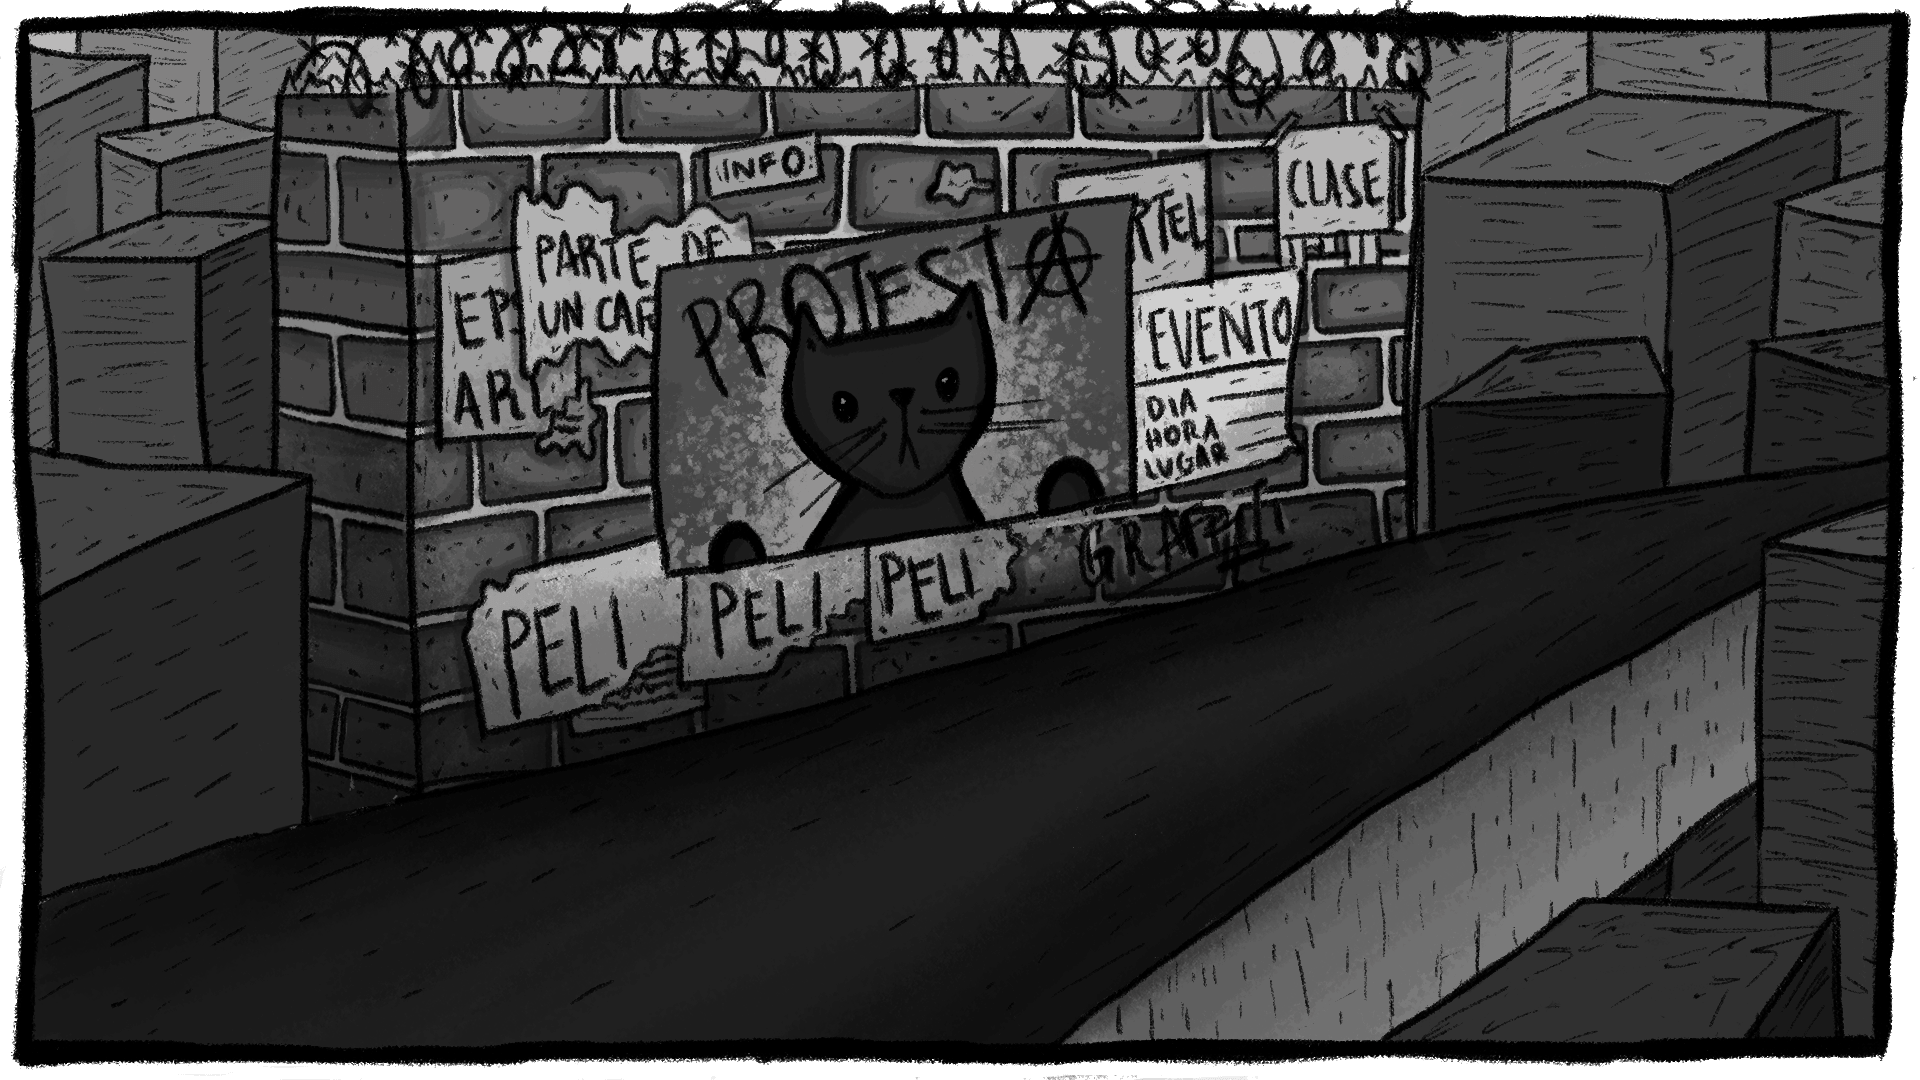 INFO
CLASE
PARTE DE
UN CAR
EPS
AR
PROTESTA
RTEL
EVENTO
DIA
HORA
LUGAR
PELI
PELI
PELI
GRAFFITI